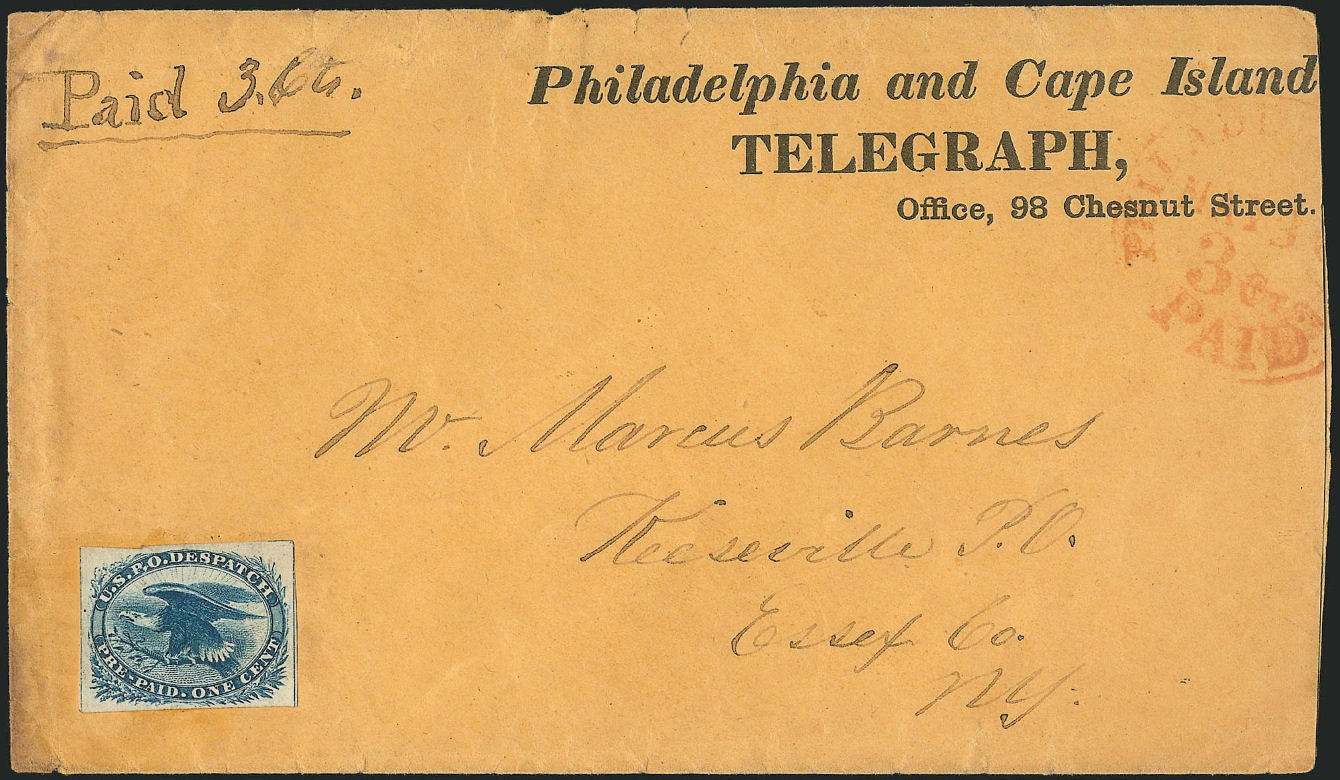 Paid 3. Cts.
Philadelphia and Cape Island
TELEGRAPH,
Office, 98 Chesnut Street.
3 Cts
PAID
Mr. Marcus Barnes
Keeseville P.O.
Essex Co.
NY.
U.S.P.O. DESPATCH
PRE-PAID. ONE CENT